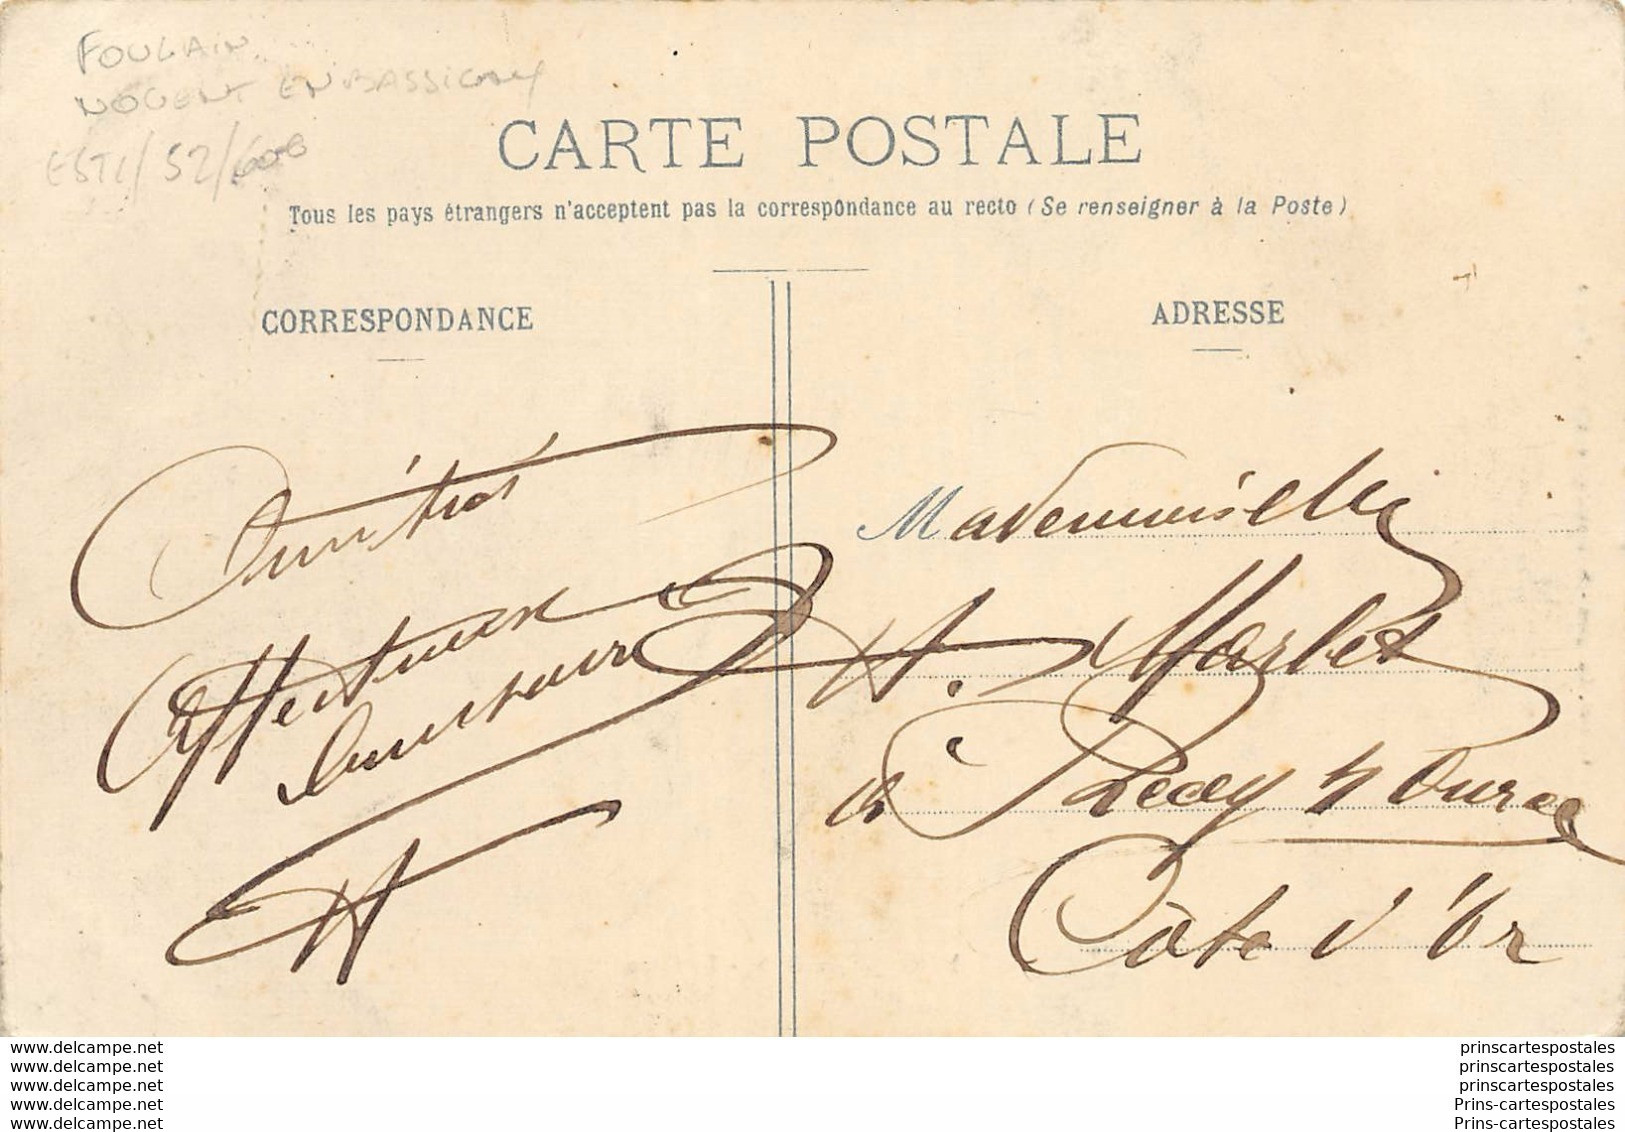 FOULAIN
NOGENT EN BASSIGNY
EST1/52/600
CARTE POSTALE
Tous les pays étrangers n'acceptent pas la correspondance au recto (Se renseigner à la Poste)
CORRESPONDANCE
ADRESSE
Amitiés
Affectueux
A
Mademoiselle
A. Marlet
à
Côte d'Or
www.delcampe.net
www.delcampe.net
www.delcampe.net
www.delcampe.net
www.delcampe.net
prinscartespostales
prinscartespostales
prinscartespostales
Prins-cartespostales
Prins-cartespostales